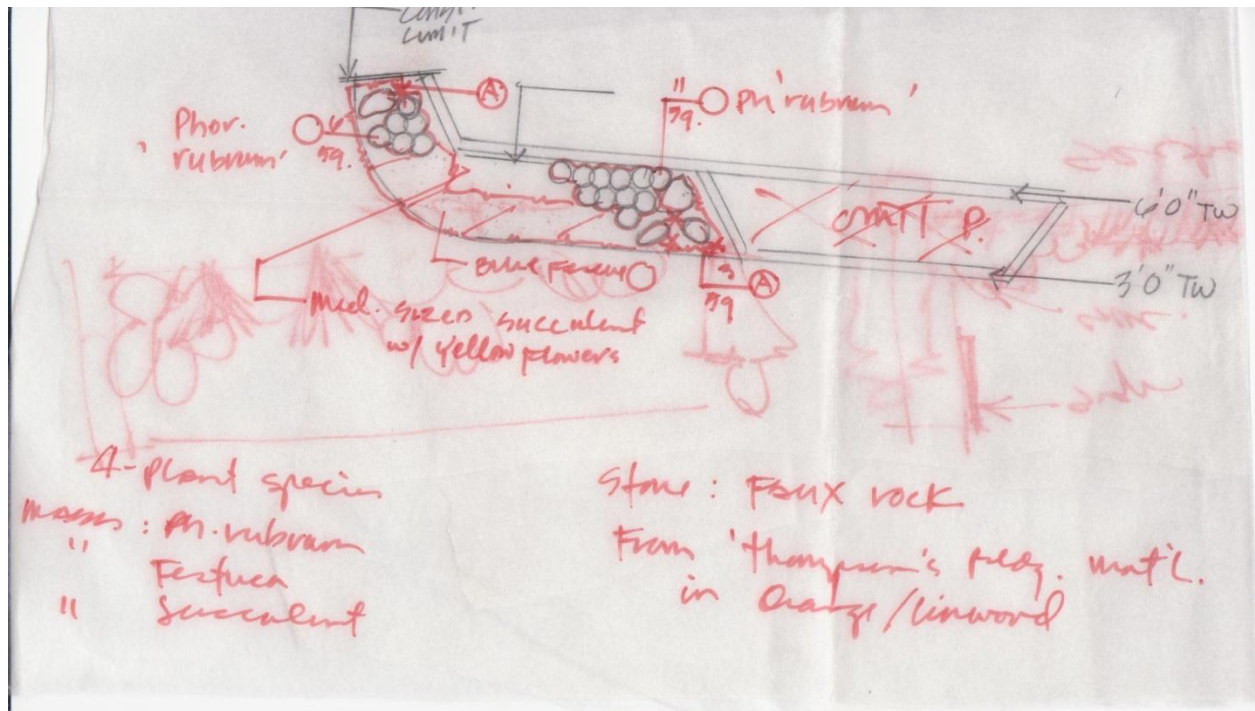 LIMIT
A
11
5g.
Ph 'rubrum'
Phor.
'rubrum'
6
5g.
6'0" TW
OMIT P.
Blue Fescue
3'0" TW
5g
A
Med. sized succulent
w/ yellow flowers
4-Plant species
masses : Ph. rubrum
" Festuca
" Succulent
Stone : Faux rock
From 'Thompson's bldg. mat'l.
in Orange/Linwood